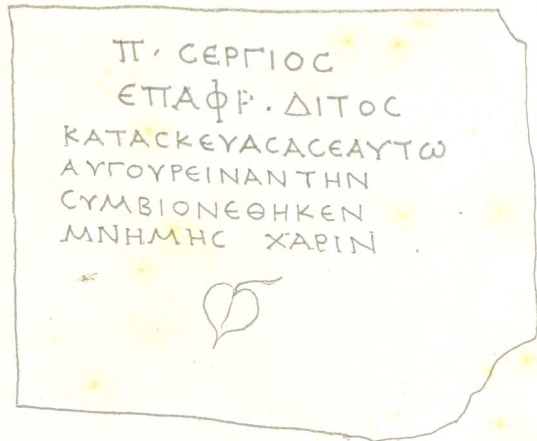 Π· CΕΡΓΙΟC
ΕΠΑΦΡ.ΔΙΤΟC
ΚΑΤΑCΚΕΥΑCΑCΕΑΥΤω
ΑΥΓΟΥΡΕΙΝΑΝΤΗΝ
CΥΜΒΙΟΝΕΘΗΚΕΝ
ΜΝΗΜΗC ΧΑΡΙΝ